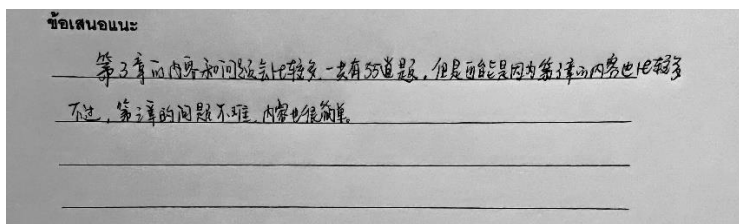 ข้อเสนอแนะ
第3章的内容和问题会比较多,一共有55道题,但是可能是因为第3章的内容也比较多
不过,第3章的问题不难,内容也很简单。